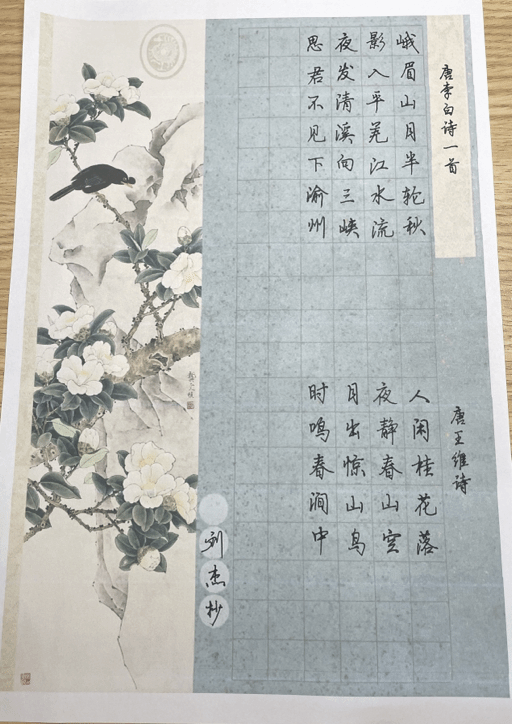 唐李白诗一首
峨眉山月半轮秋
影入平羌江水流
夜发清溪向三峡
思君不见下渝州
唐王维诗
人闲桂花落
夜静春山空
月出惊山鸟
时鸣春涧中
刘杰抄